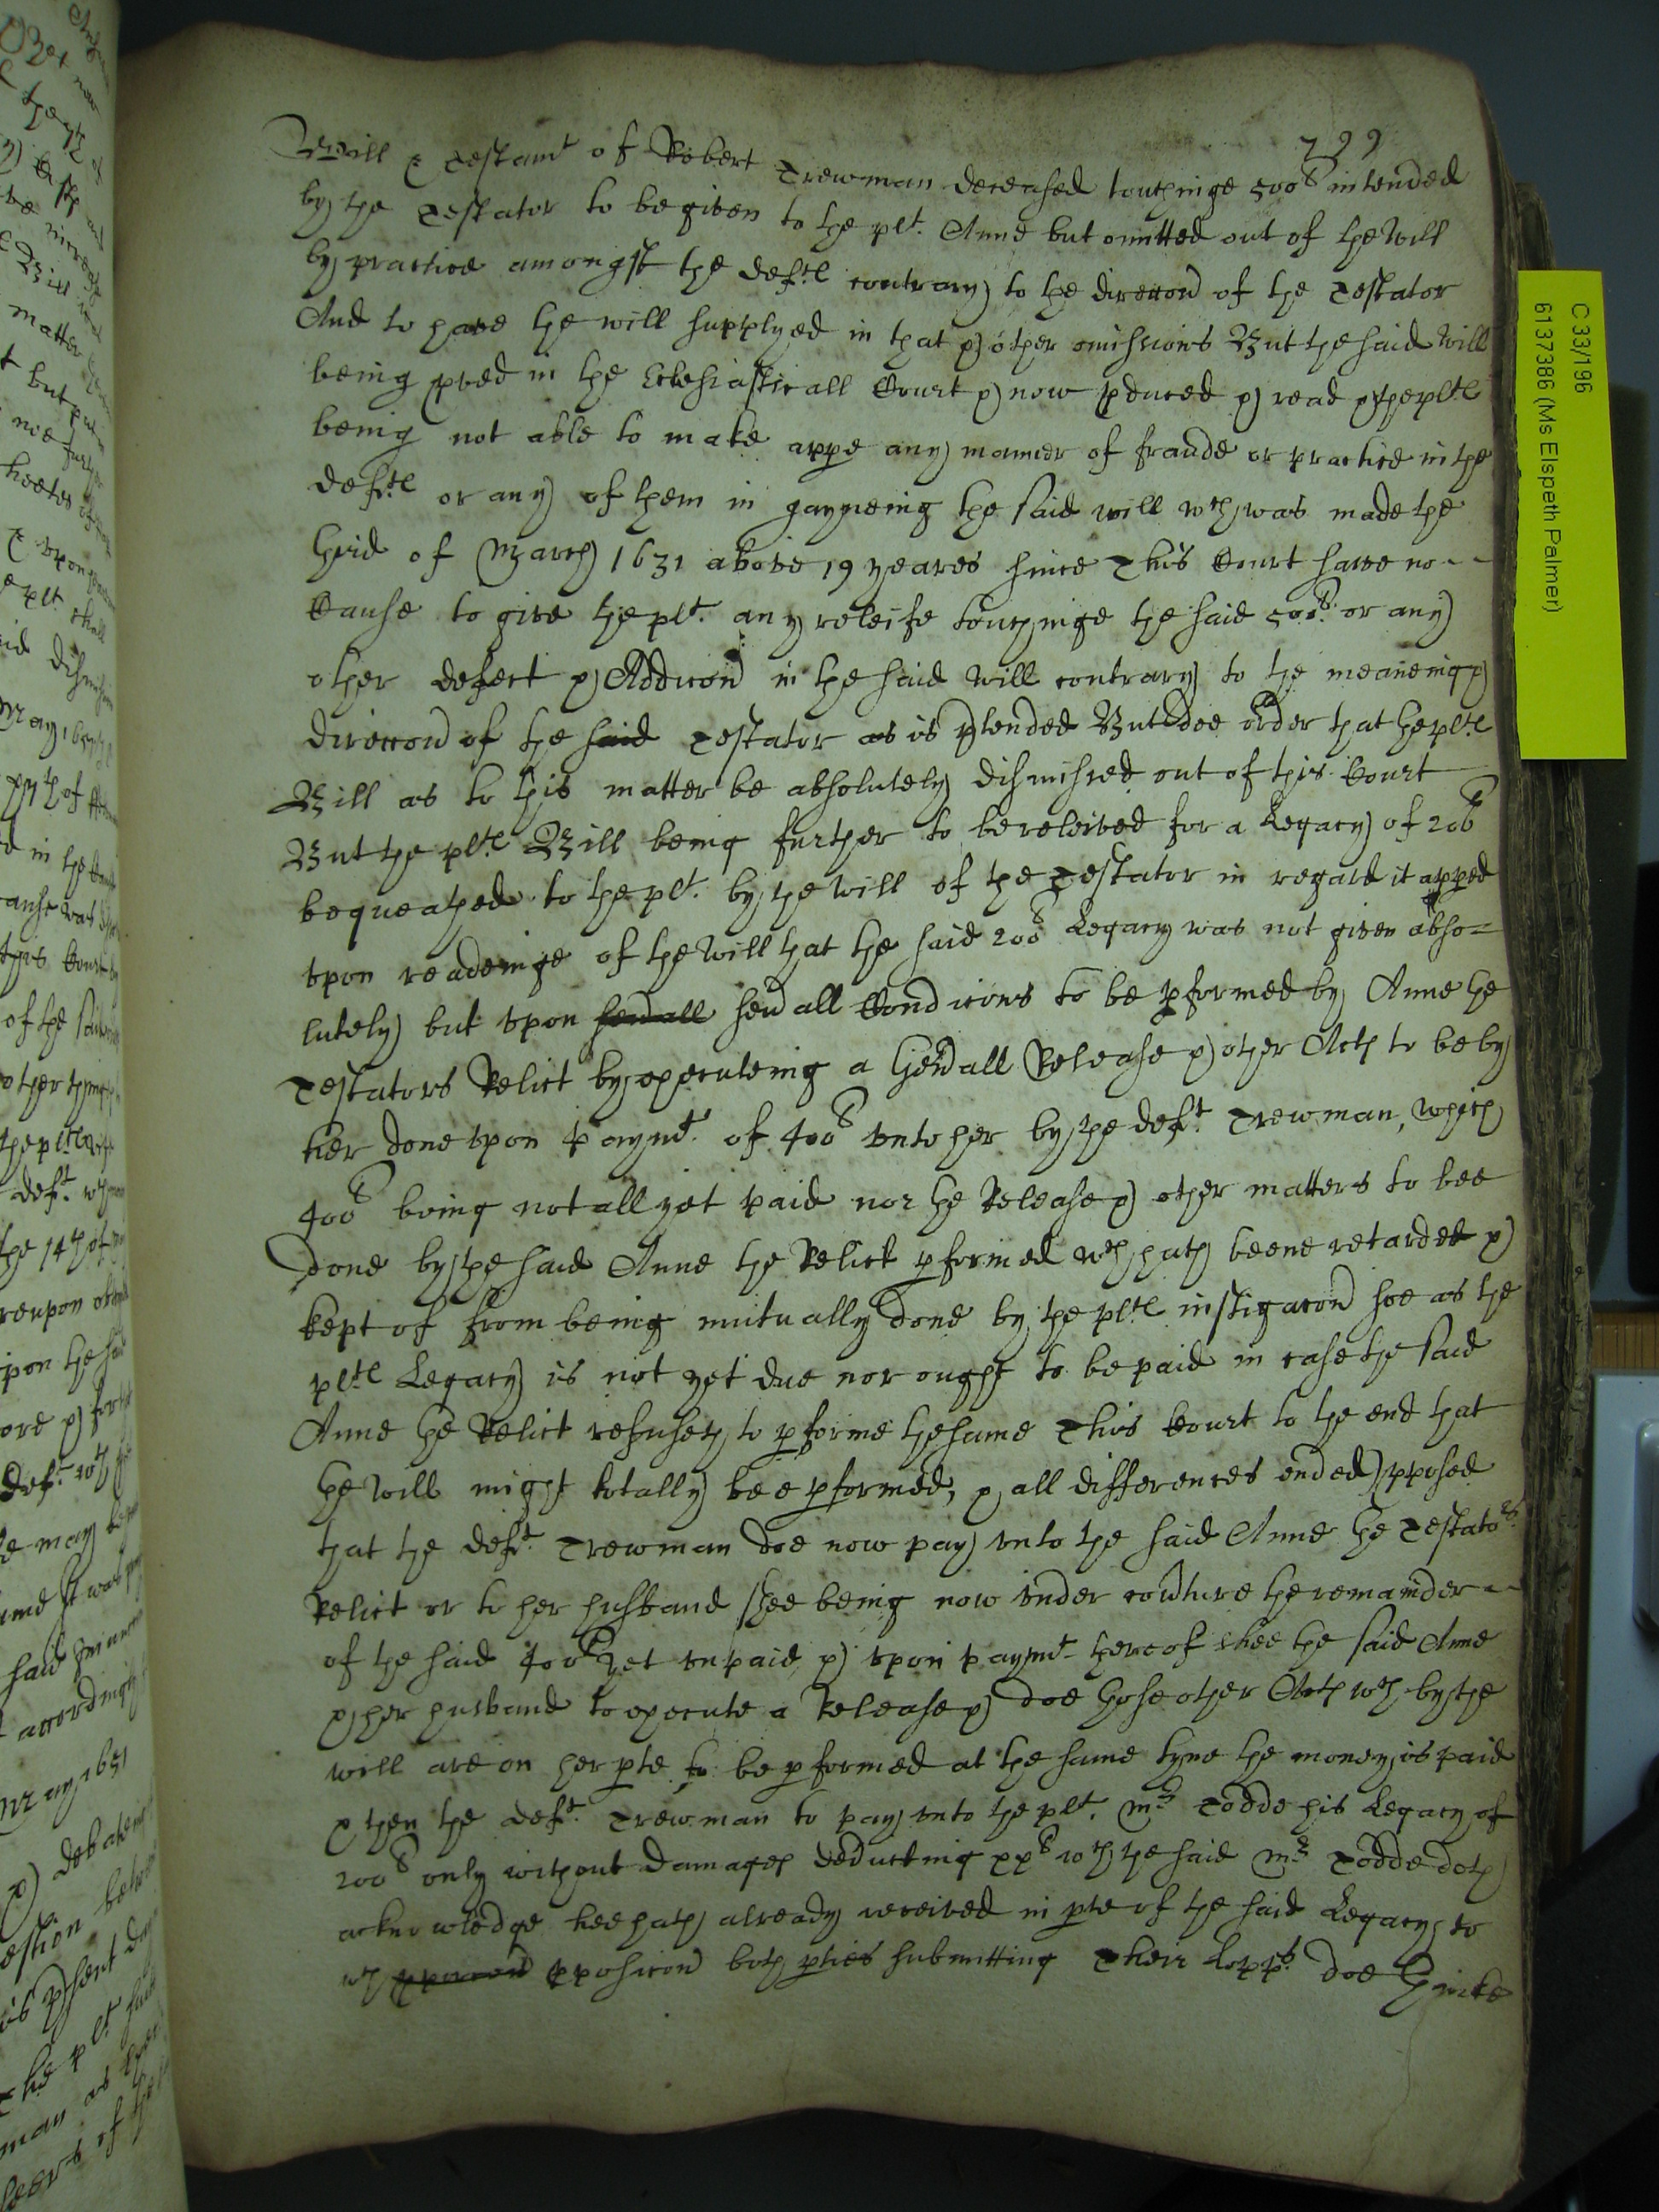 799
Will & Testamt of Robert Trewman deceased touchinge 500li intended
by the Testator to be given to the plt. Anne but omitted out of the Will
by practice amongst the defts contrary to the direccon of the Testator
And to have the will supplyed in that & other omissions But the said Will
being pved in the Eclesiasticall Court & now pduced & read & the plts
being not able to make appe any manner of fraude or practice in the
defts or any of them in gayneing the said will wch was made the
third of March 1631 above 19 yeares since This Court sawe no --
Cause to give the plt. any releife touchinge the said 500li or any
other defect & Addicon in the said Will contrary to the meaneing &
direccon of the said Testator as is ptended But doe order that the plts
Bill as to this matter be absolutely dismissed out of this Court
But the plts Bill being further to be releived for a Legacy of 200li
bequeathed to the plt. by the Will of the Testator in regard it apped
upon readeinge of the Will that the said 200li Legacy was not given abso=
lutely but upon seuall seuall Condicons to be pformed by Anne the
Testators Relict by executeing a Genall Release & other Acts to be by
her done upon paymt. of 400li unto her by the deft. Trewman, which
400li being not all yet paid nor the Release & other matters to bee
done by the said Anne the Relict pformed wch hath beene retarded &
kept of from being mutually done by the plts instigacon soe as the
plts Legacy is not yet due nor ought to be paid in case the said
Anne the Relict refuseth to pforme the same This Court to the end that
the Will might totally bee pformed, & all differences ended pposed
that the deft. Trewman doe now pay unto the said Anne the Testators
Relict or to her husband shee being now under couture the remainder -
of the said 400li yet unpaid & upon paymt thereof shee the said Anne
& her husband to execute a Release & doe those other Acts wch by the
will are on her pte to be pformed at the same tyme the money is paid
& then the deft. Trewman to pay unto the plt. Mr Todde his Legacy of
200li only without damages deducting xxli wch the said Mr Todde doth
acknowledge hee hath already received in pte of the said Legacy to
wch pposicon both pties submitting Their Lopps. doe thinke
C 33/196
6137386 (Ms Elspeth Palmer)